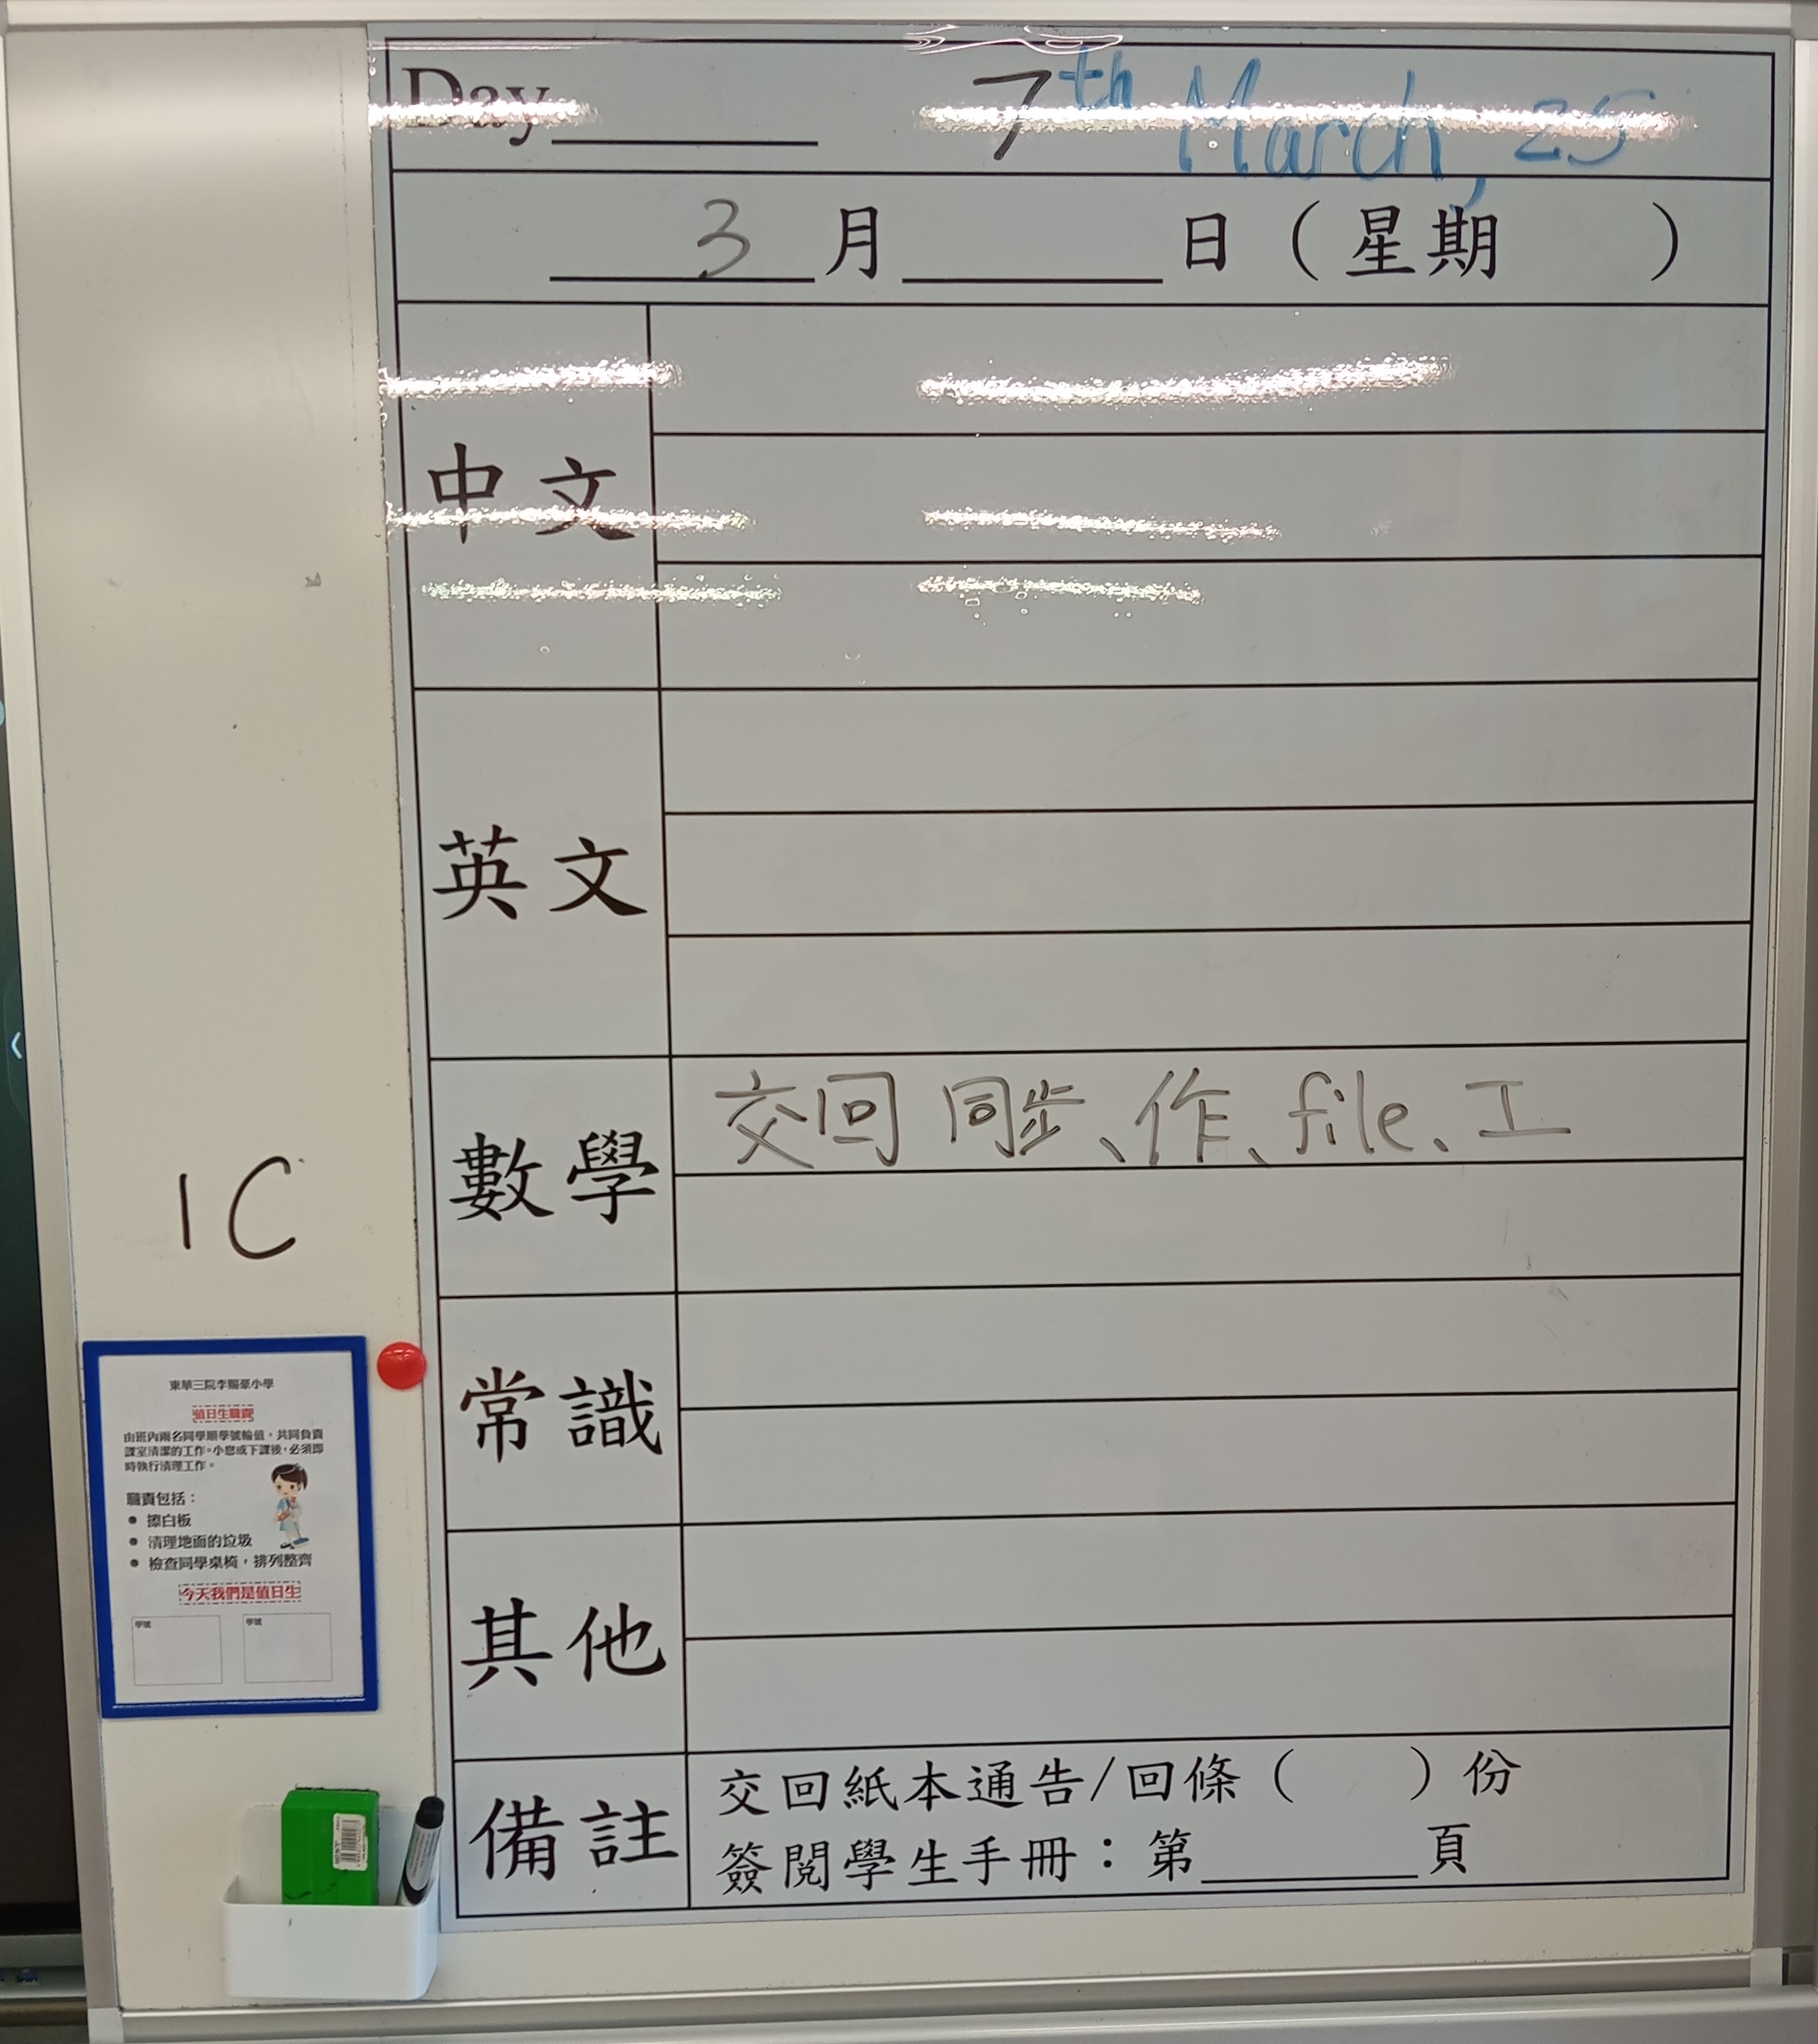 Day______ 7th March, 25
3月______日（星期　　）
中文
英文
數學
交回 同步、作、file、工
常識
其他
備註
交回紙本通告/回條（　　）份
簽閱學生手冊：第______頁
1C
東華三院李賜豪小學
值日生職責
由班內兩名同學順學號輪值，共同負責
課室清潔的工作。小息或下課後，必須即
時執行清理工作。
職責包括：
● 擦白板
● 清理地面的垃圾
● 檢查同學桌椅，排列整齊
今天我們是值日生
學號 學號